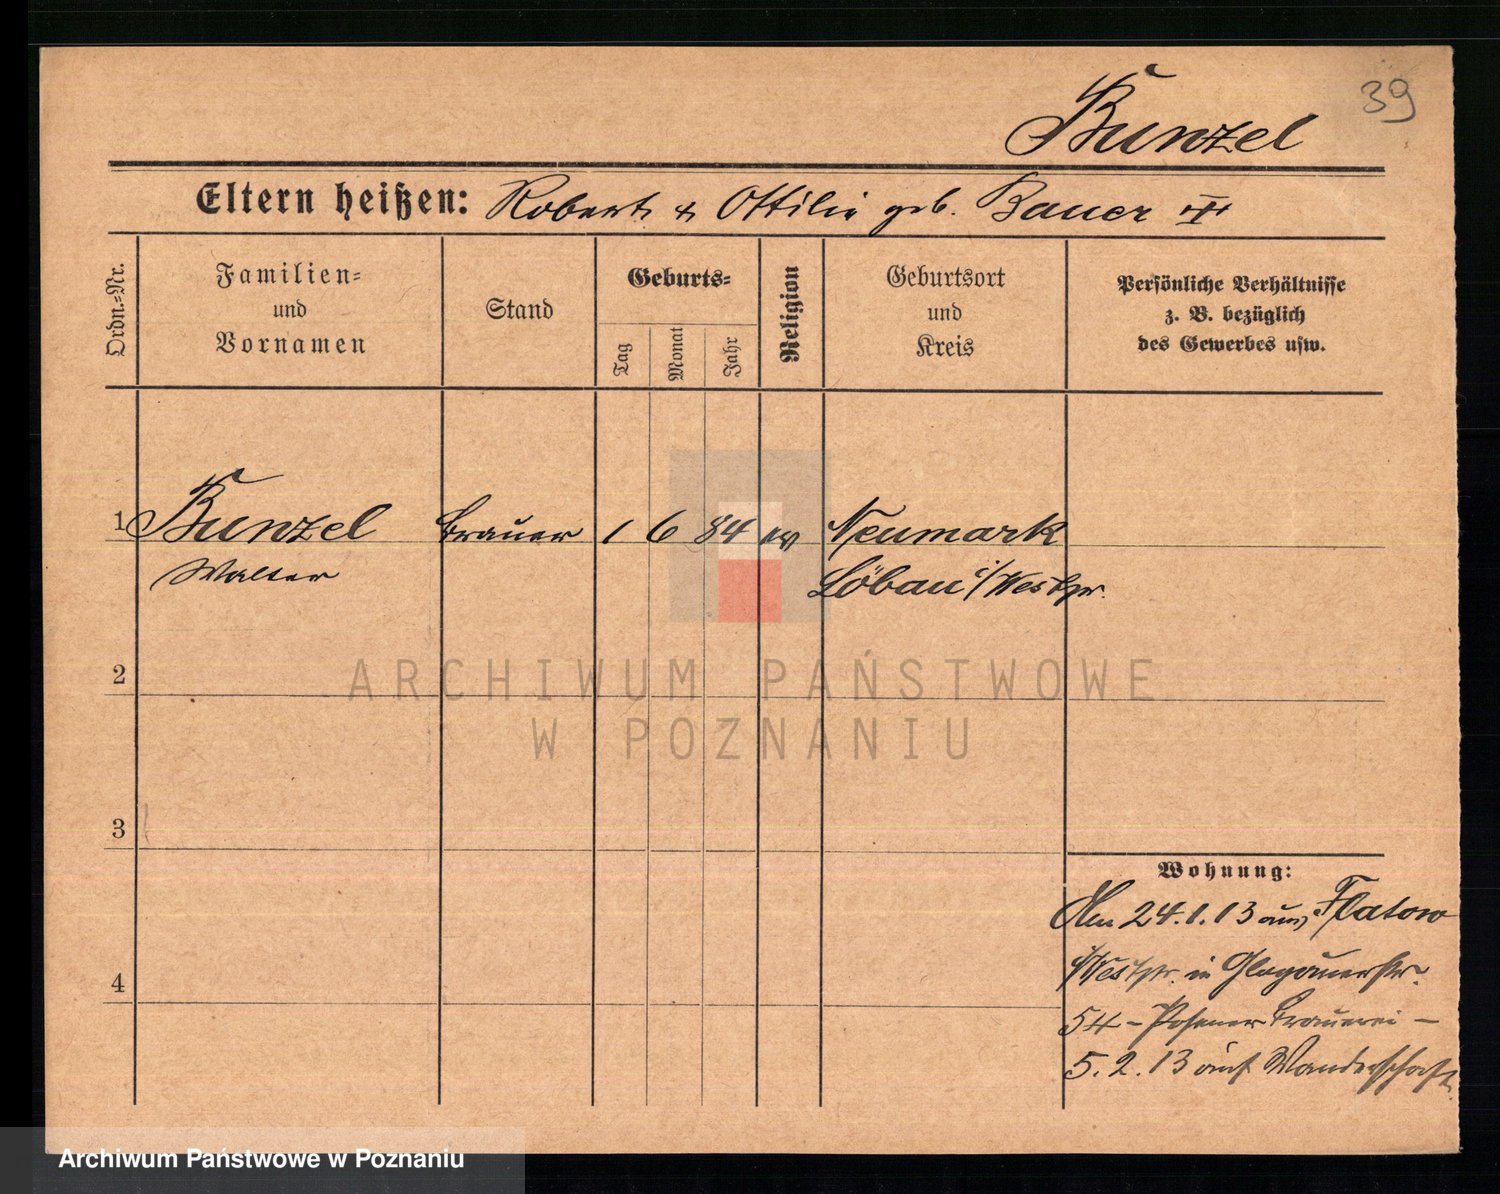 39
Bunzel
Eltern heißen: Robert & Ottilie geb. Bauer
Ordn.-Nr.
Familien-
und
Vornamen
Stand
Geburts-
Tag
Monat
Jahr
Religion
Geburtsort
und
Kreis
Persönliche Verhältnisse
z. B. bezüglich
des Gewerbes usw.
1 Bunzel Brauer 1 6 84 ev Neumark
Walter Löbau i/Westpr.
2
ARCHIWUM PAŃSTWOWE
W POZNANIU
3
Wohnung:
Am 24.1.13 aus Flatow
i/Westpr. in Glogauerstr.
4
54 – Posener Brauerei –
5.2.13 auf Wanderschaft
Archiwum Państwowe w Poznaniu